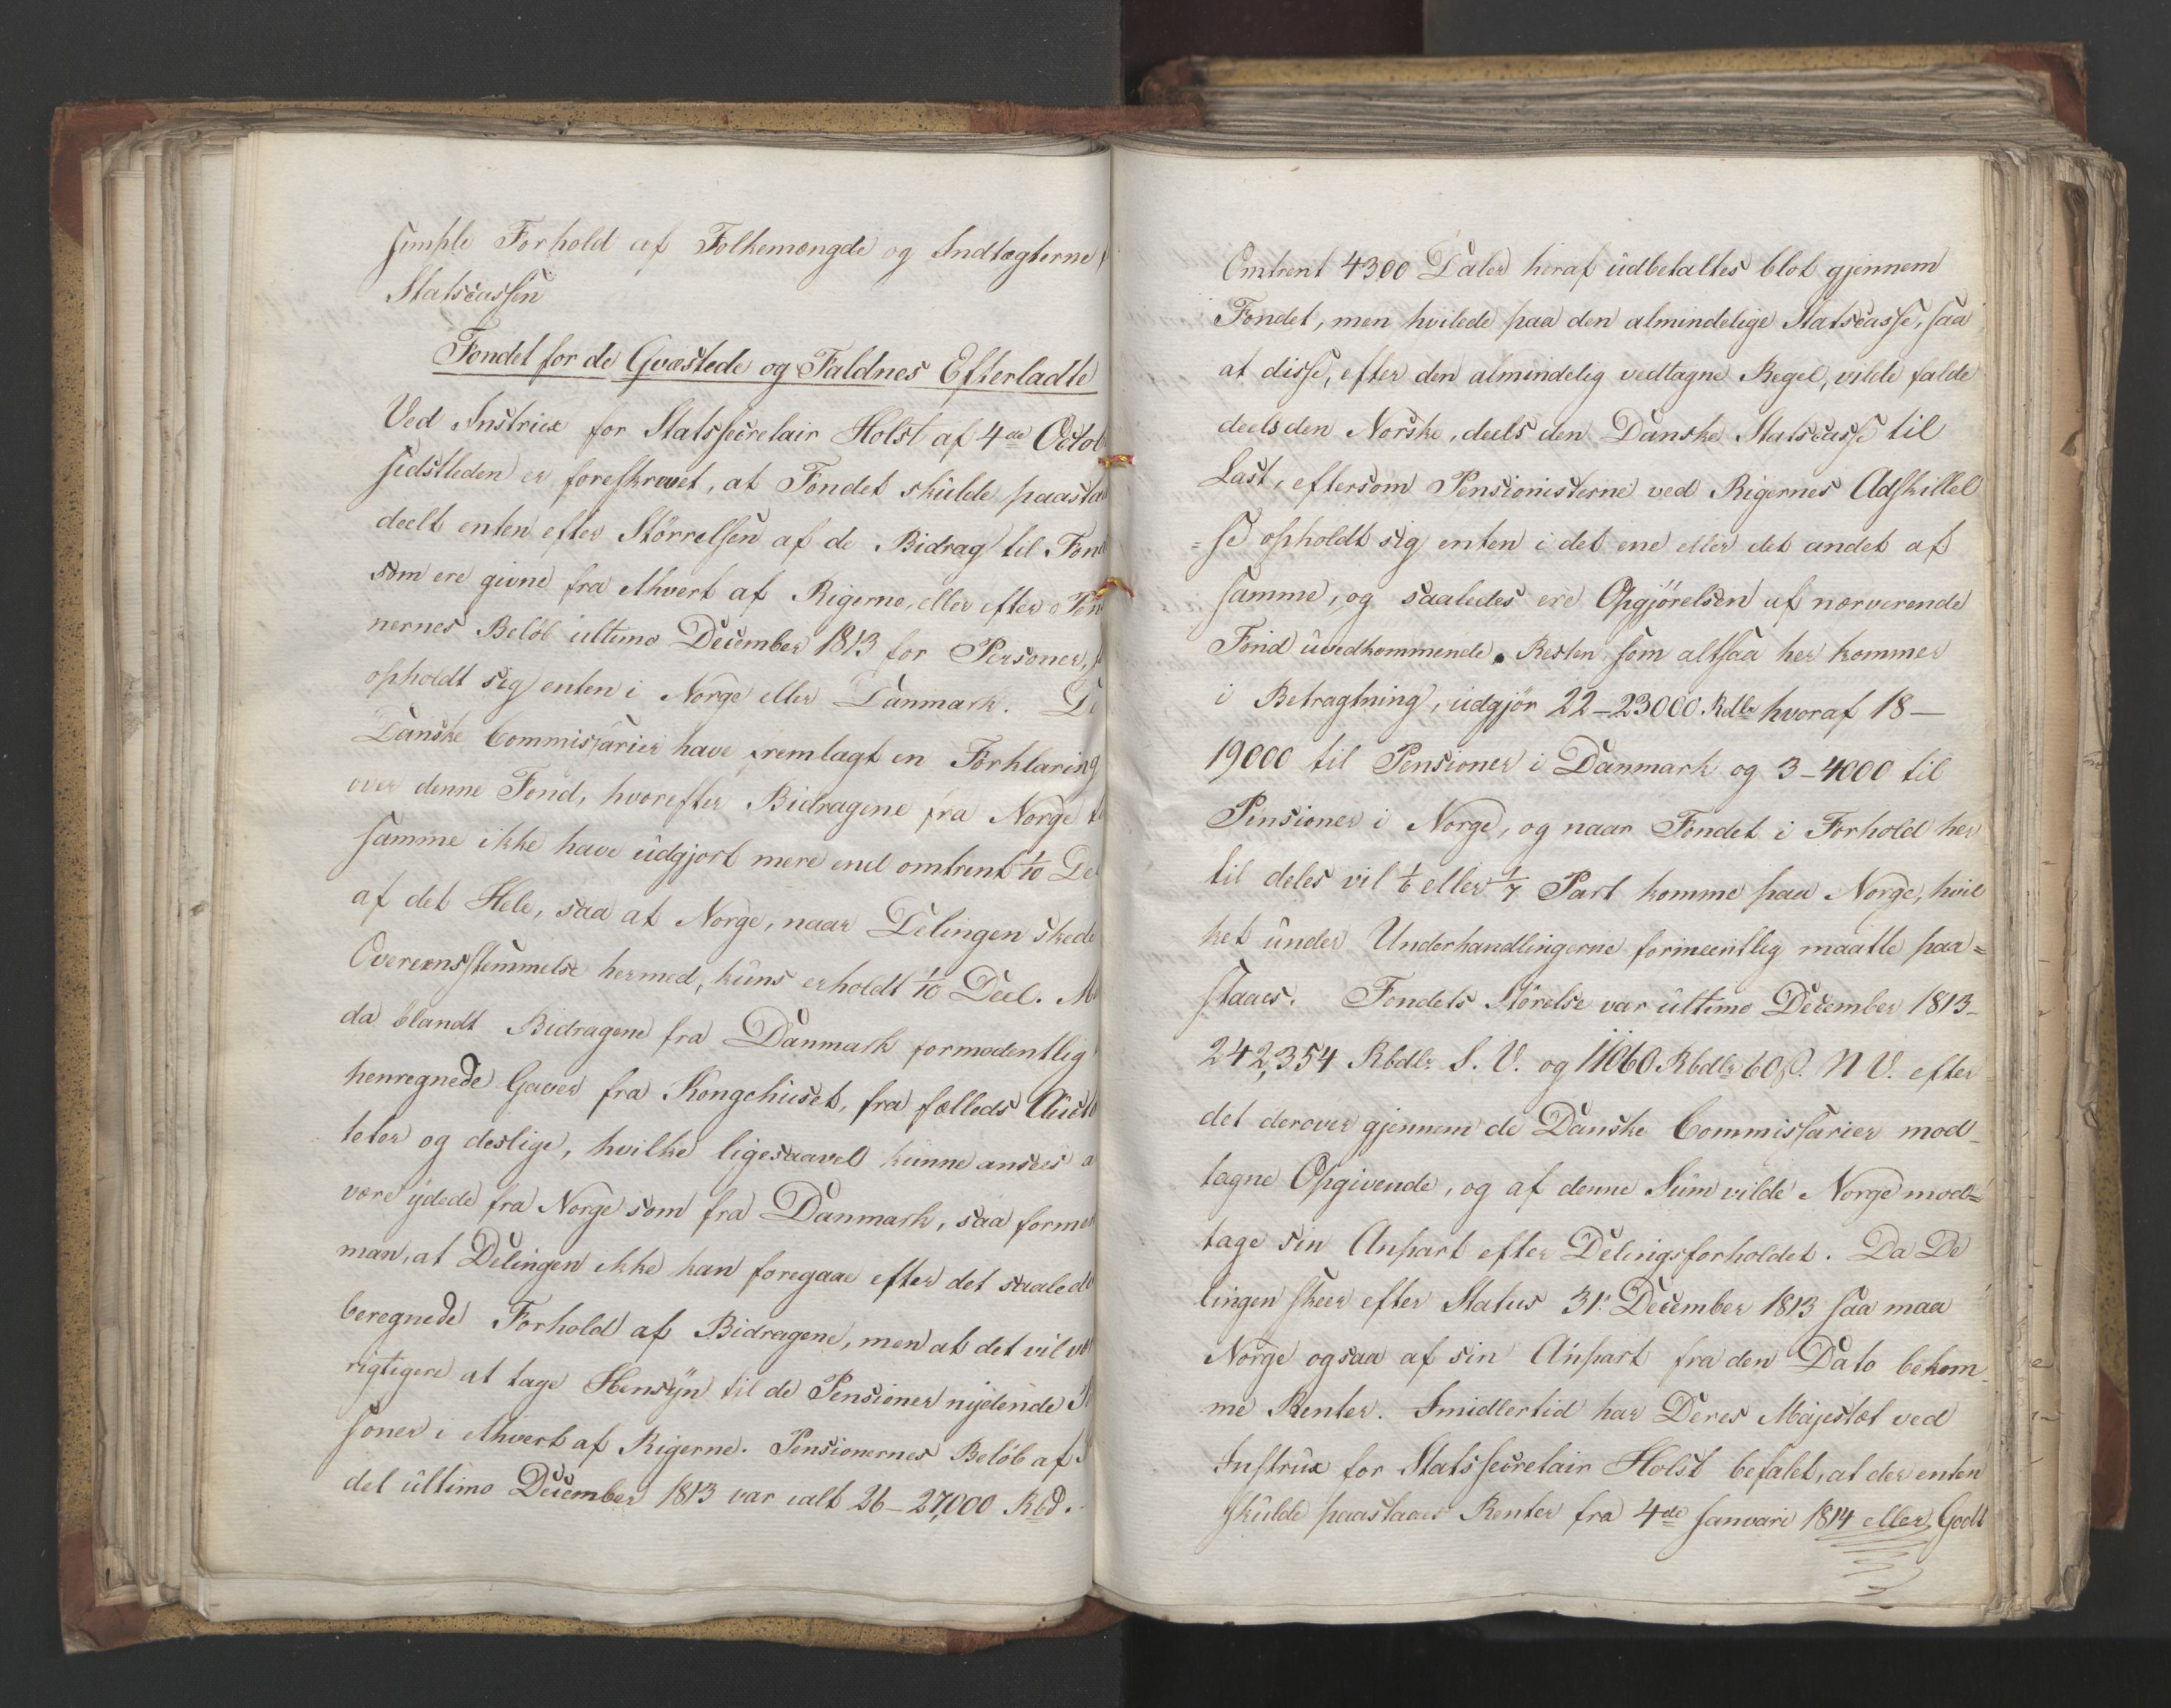 simple Forhold af Folkemængde og Indtægterne
Statscassen
Fondet for de Qvæstede og Faldnes Efterladte
Ved Instrux for Statssecretair Holst af 4de Octob
sidstleden er foreskrevet, at Fondet skulde paastaa
deelt enten efter Størrelsen af de Bidrag til Fond
som ere givne fra Ethvert af Rigerne, eller efter Pen
nernes Beløb ultimo December 1813 for Personer, s
opholdt sig enten i Norge eller Danmark. De
Danske Commissarier have fremlagt en Forklaring
over denne Fond, hvorefter Bidragene fra Norge t
samme ikke have udgjort mere end omtrent 1/10 De
af det Hele, saa at Norge, naar Delingen skede
Overeensstemmelse hermed, kuns erholdt 1/10 Deel. M
da blandt Bidragene fra Danmark formodentlig
henregnede Gaver fra Kongehuset, fra fælleds Aucto
teter og deslige, hvilke ligesaavel kunne ansees a
være ydede fra Norge som fra Danmark, saa formen
man, at Delingen ikke kan foregaae efter det saalede
beregnede Forhold af Bidragene, men at det vil væ
rigtigere at tage Hensyn til de Pensioner nydende P
soner i Ethvert af Rigerne. Pensionernes Beløb af
det ultimo December 1813 var ialt 26-27,000 Rbd.
Omtrent 4300 Daler heraf udbetaltes blot gjennem
Fondet, men hvilede paa den almindelige Statscasse, saa
at disse, efter den almindelig vedtagne Regel, vilde falde
deels den Norske, deels den Danske Statscasse til
Last, eftersom Pensionisterne ved Rigernes Adskillel
=se opholdt sig enten i det ene eller det andet af
samme, og saaledes ere Opgjørelsen af nærværende
Fond uvedkommende. Resten som altsaa her kommer
i Betragtning, udgjør 22-23000 Rdlr hvoraf 18-
19000 til Pensioner i Danmark og 3-4000 til
Pensioner i Norge, og naar Fondet i Forhold her
til deles vil 1/6 eller 1/7 Part komme paa Norge, hvil
ket under Underhandlingerne formeentlig maatte paa=
staaes. Fondets Størelse var ultimo December 1813-
242,354 Rbdlr S. V. og 11060 Rbdlr 60 s. N V. efter
det derover gjennem de Danske Commissarier mod-
tagne Opgivende, og af denne Sum vilde Norge mod=
tage sin Anpart efter Delingsforholdet. Da De
lingen skeer efter Status 31. December 1813 saa maa
Norge ogsaa af sin Anpart fra den Dato bekom-
me Renter. Imidlertid har Deres Majestæt ved
Instrux for Statssecretair Holst befalet, at der enten
skulde paastaaes Renter fra 4de Januari 1814 eller Godt